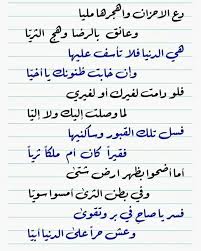 دع الاحزان واهجرها مليا
وعانق بالرضا وهج الثريا
هي الدنيا فلا تأسف عليها
وإن خابت ظنونك يا أخيا
فلو دامت لغيرك أو لغيري
لما وصلت إليك ولا إليا
فسل تلك القبور وساكنيها
فقيراً كان أم ملكاً ثرياً
أما أضحوا بظهر ارض شتى
وفي بطن الثرى امسوا سويا
فسر يا صاح في بر وتقوى
وعش حراً على الدنيا أبيا